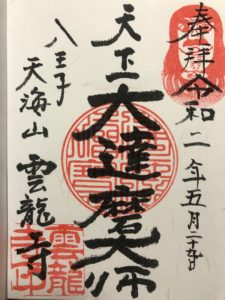 奉拝 令和二年五月二十五日
天下一 大達磨大師
八王子
天海山 雲龍寺
雲龍
寺印